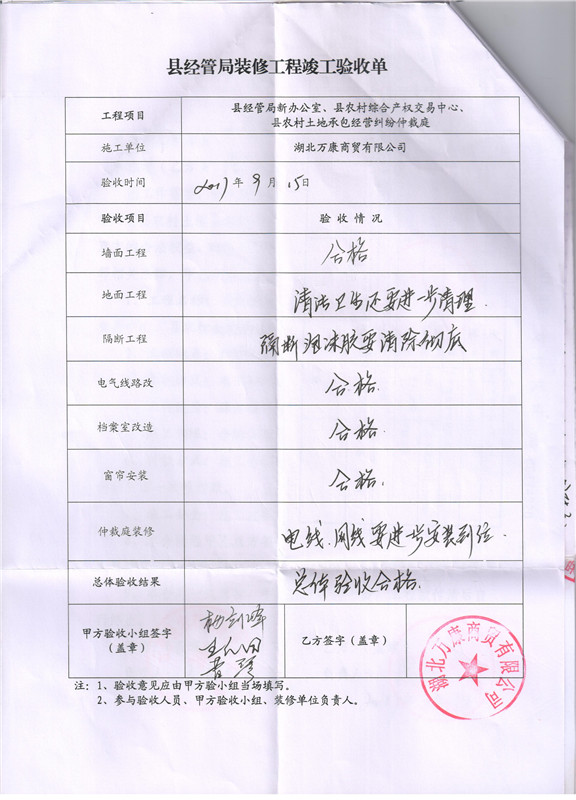 县经管局装修工程竣工验收单
工程项目 县经管局新办公室、县农村综合产权交易中心、
县农村土地承包经营纠纷仲裁庭
施工单位 湖北万康商贸有限公司
验收时间 2017年9月15日
验收项目 验收情况
墙面工程 合格
地面工程 清洁卫生还要进一步清理.
隔断工程 隔断泡沫胶要清除彻底
电气线路改 合格.
档案室改造 合格.
窗帘安装 合格.
仲裁庭装修 电线、网线要进一步安装到位.
总体验收结果 总体验收合格.
甲方验收小组签字
（盖章）
乙方签字（盖章）
湖北万康商贸有限公司
注：1、验收意见应由甲方验小组当场填写。
2、参与验收人员、甲方验收小组、装修单位负责人。